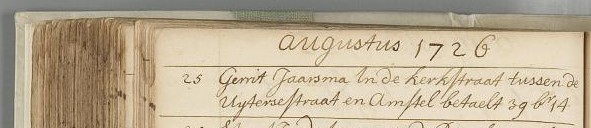 Augustus 1726
25 Gerrit Jaarsma In de kerkstraat tussen de
Uyterse straat en Amstel betaelt 39 bs 14